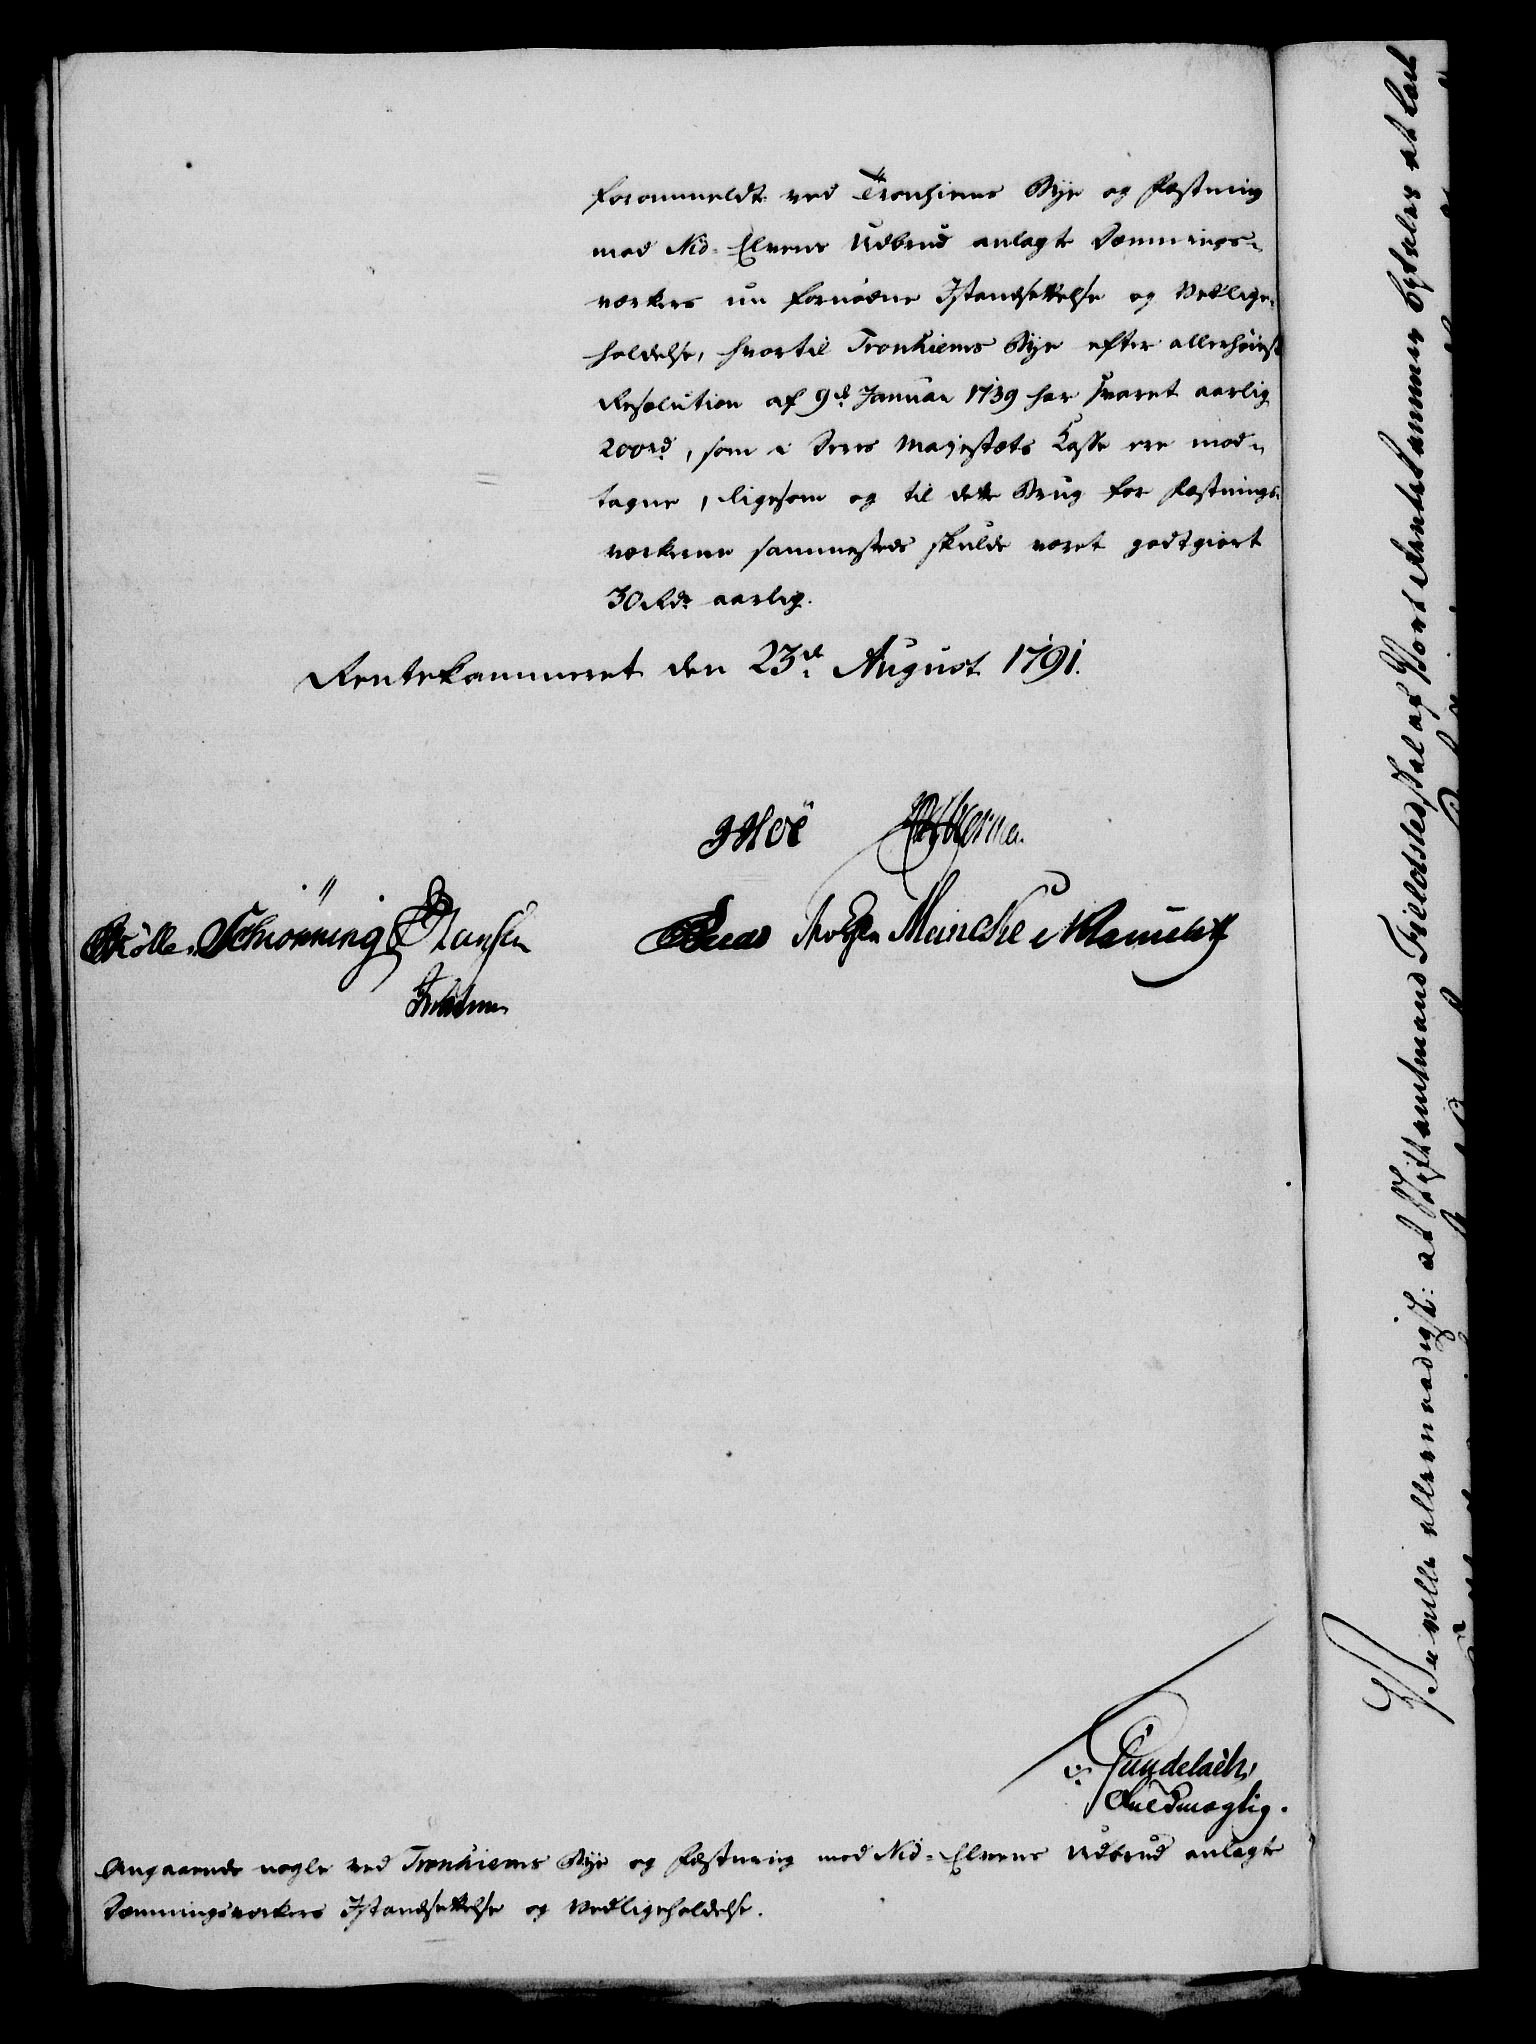 forommeldte ved Tronhiems Bye og Fæstning
mod Nid-Elvens Udbrud anlagte Dæmnings-
værkers nu fornødne Istandsættelse og Vedlige-
holdelse, hvortil Tronhiems Bye efter allerhøiest
Resolution af 9de Januar 1739 har svaret aarlig
200rd, som i Deres Majestæts Kasse ere mod-
tagne, ligesom og til dette Brug for Fæstnings-
værkerne sammesteds skulde været godtgiort
30 Rdr aarlig.
Rentekammeret den 23de August 1791.
JHoë
Mølle. Schiønning Hansen
Meincke
Gundelach,
Fuldmægtig.
Angaaende nogle ved Tronhiems Bye og Fæstning mod Nid-Elvens Udbrud anlagte
Dæmningsværkers Istandsættelse og Vedligeholdelse.
Vi ville allernaadigst: at Stiftamtmand Fieldsted skal af Vort Rentekammer befales at lade